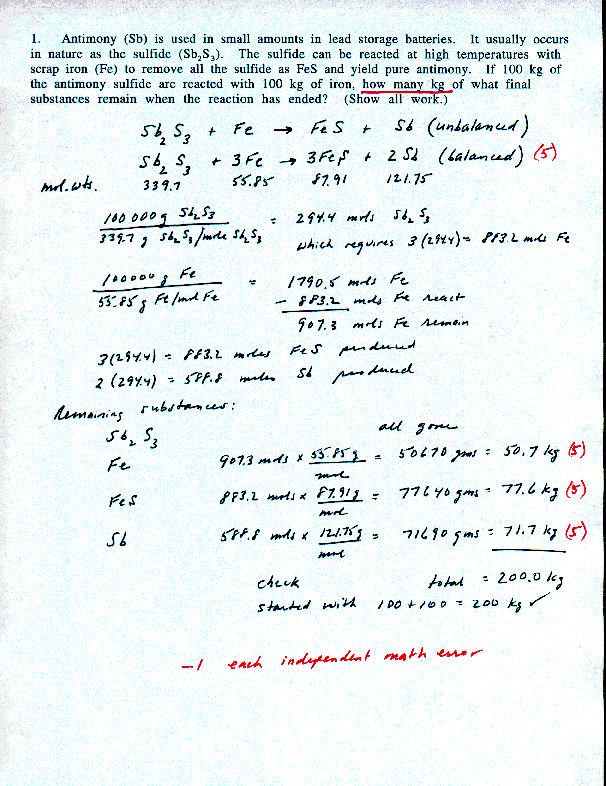 1. Antimony (Sb) is used in small amounts in lead storage batteries. It usually occurs
in nature as the sulfide (Sb₂S₃). The sulfide can be reacted at high temperatures with
scrap iron (Fe) to remove all the sulfide as FeS and yield pure antimony. If 100 kg of
the antimony sulfide are reacted with 100 kg of iron, how many kg of what final
substances remain when the reaction has ended? (Show all work.)
Sb₂S₃ + Fe → FeS + Sb (unbalanced)
Sb₂S₃ + 3Fe → 3FeS + 2Sb (balanced) (5)
mol.wts. 339.7 55.85 87.91 121.75
100 000 g Sb₂S₃ / 339.7 g Sb₂S₃/mole Sb₂S₃ = 294.4 mols Sb₂S₃
which requires 3(294.4) = 883.2 mols Fe
100000 g Fe / 55.85 g Fe/mol Fe = 1790.5 mols Fe
- 883.2 mols Fe react
907.3 mols Fe remain
3(294.4) = 883.2 moles FeS produced
2(294.4) = 588.8 moles Sb produced
Remaining substances:
Sb₂S₃ all gone
Fe 907.3 mols x 55.85 g / mol = 50670 gms = 50.7 kg (5)
FeS 883.2 mols x 87.91 g / mol = 77640 gms = 77.6 kg (5)
Sb 588.8 mols x 121.75 g / mol = 71690 gms = 71.7 kg (5)
check total = 200.0 kg
started with 100 + 100 = 200 kg ✓
-1 each independent math error